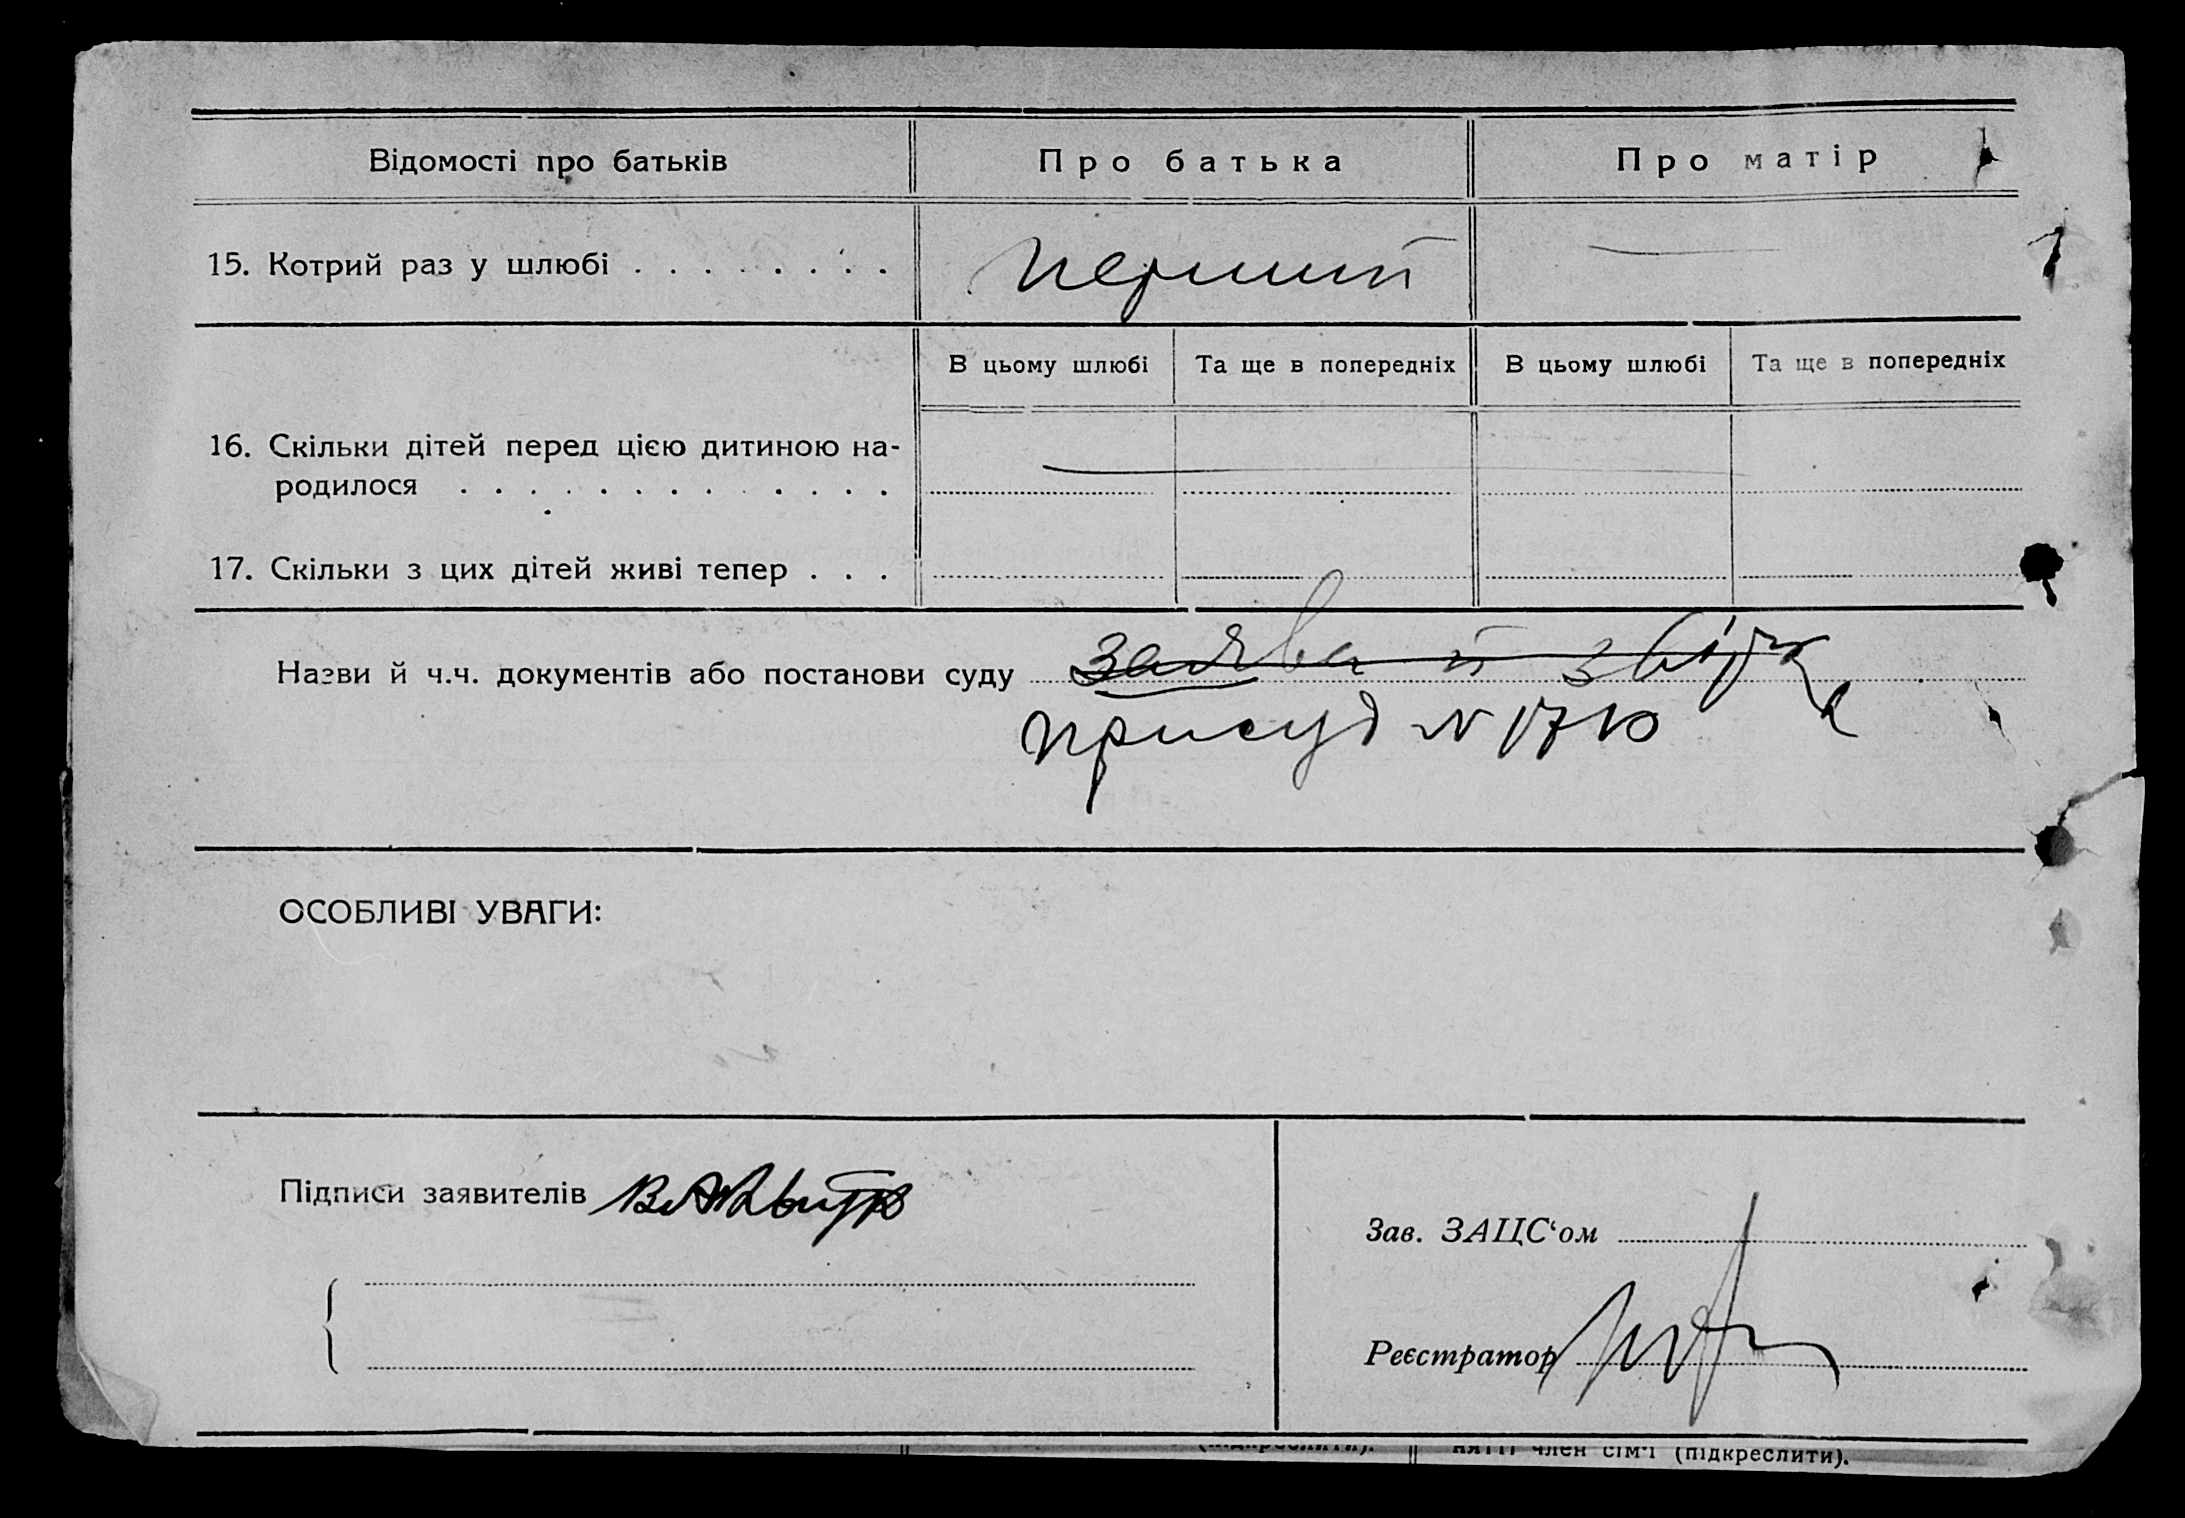 Відомості про батьків Про батька Про матір
15. Котрий раз у шлюбі . . . . . . . . перший —
В цьому шлюбі Та ще в попередніх В цьому шлюбі Та ще в попередніх
16. Скільки дітей перед цією дитиною на-
родилося . . . . . . . . . . . . . —
17. Скільки з цих дітей живі тепер . . .
Назви й ч.ч. документів або постанови суду заява й
присуд N 1710
ОСОБЛИВІ УВАГИ:
Підписи заявителів
Зав. ЗАЦС‘ом
Реєстратор
(підкреслити). нятті член сім'ї (підкреслити).